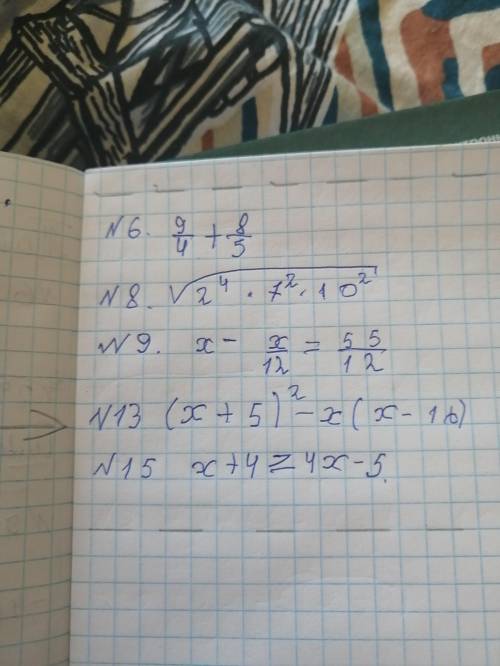 N6. 9/4 + 8/5
N8. √(2⁴ · 7² · 10²)
N9. x - x/12 = 55/12
N13 (x + 5)² - x(x - 10)
N15 x + 4 ≥ 4x - 5.